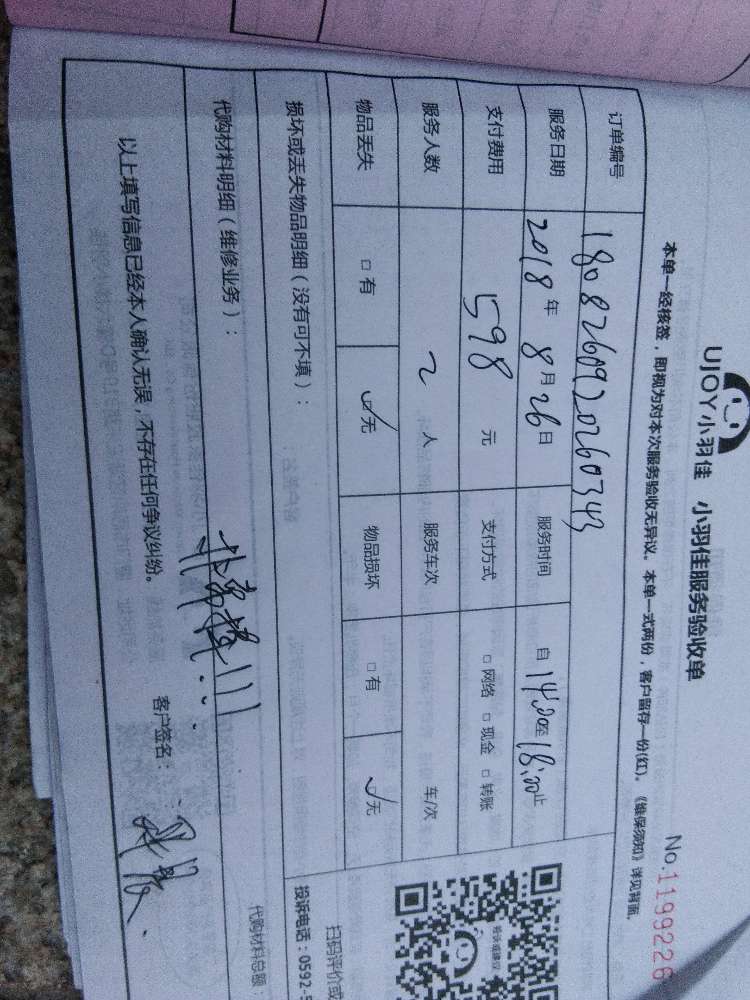 UJOY小羽佳 小羽佳服务验收单
No.1199226
本单一经核签，即视为对本次服务验收无异议。本单一式两份，客户留存一份(红)。《维保须知》详见背面。
订单编号 1808260920260343
服务日期 2018年8月26日 服务时间 自14:00至18:00止
支付费用 598元 支付方式 □网络 □现金 □转账
服务人数 2人 服务车次 车/次
物品丢失 □有 ☑无 物品损坏 □有 ☑无
损坏或丢失物品明细（没有可不填）：
代购材料明细（维修业务）：
代购材料总额：
以上填写信息已经本人确认无误，不存在任何争议纠纷。 客户签名：
投诉或建议
扫码评价或
投诉电话：0592-5